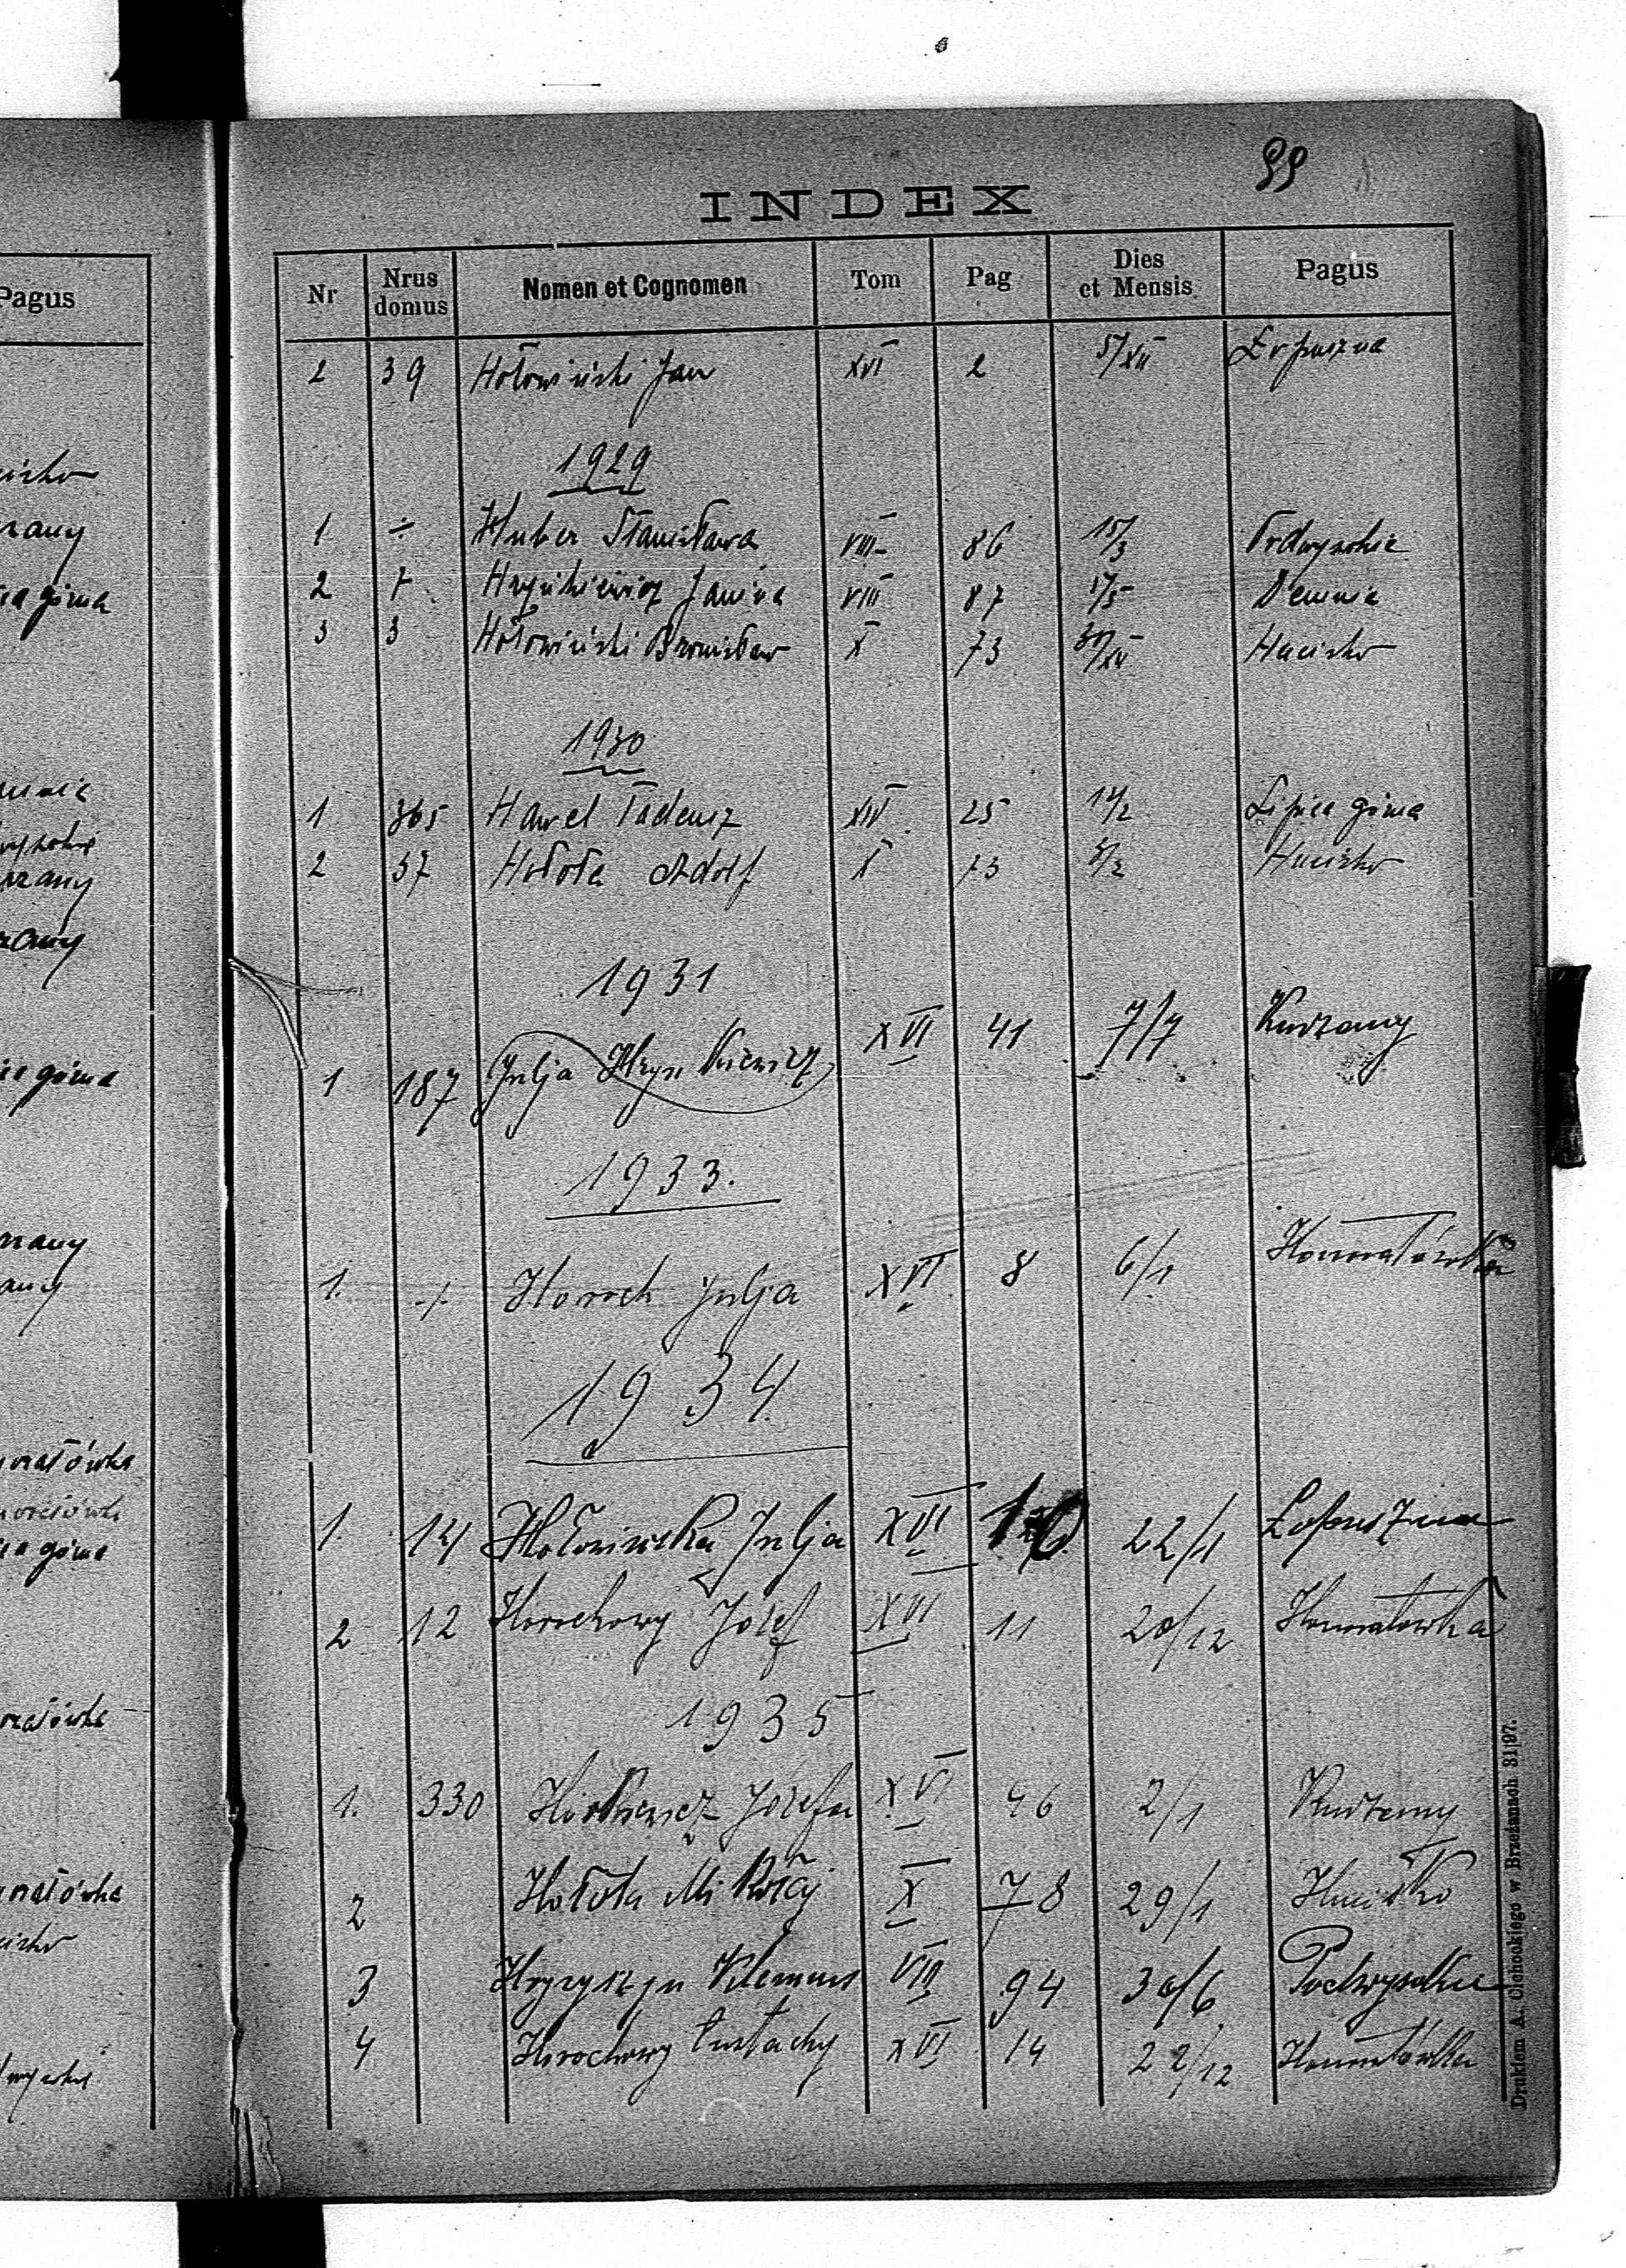 99
INDEX
Nr Nrus domus Nomen et Cognomen Tom Pag Dies et Mensis Pagus
Pagus
2 39 Hołowiński Jan XVI 2 5/XII Łopuszna
1929
1 ÷ Huber Stanisława VIII 86 15/3 Podwysokie
2 7 Hryńkiewicz Janina VIII 87 1/5 Demnia
3 3 Hołowiński Bronisław X 73 Hucisko
1930
1 365 Hawel Tadeusz XIV 25 14/2 Lipica górna
2 37 Hołota Adolf X 73 5/2 Hucisko
1931
1 187 Julja Hrynkiewicz XVI 41 7/7 Kurzany
1933.
1. -/- Horoch Julja XVI 8 6/1 Honoratówka
1934
1. 14 Hołowińska Julja XVI 10 22/1 Łopuszna
2 12 Horochowy Józef XVI 11 20/12 Honoratówka
1935
1. 330 Józefa XVI 46 2/1 Kurzany
2 Hołota Mikołaj X 78 29/1 Hucisko
3 Hryzyszyn Klemens VIII 94 30/6 Podwysokie
4 Horochowy Eustachy XVI 14 22/12 Honoratówka
Drukiem A. Cichockiego w Brzeżanach 31|97.